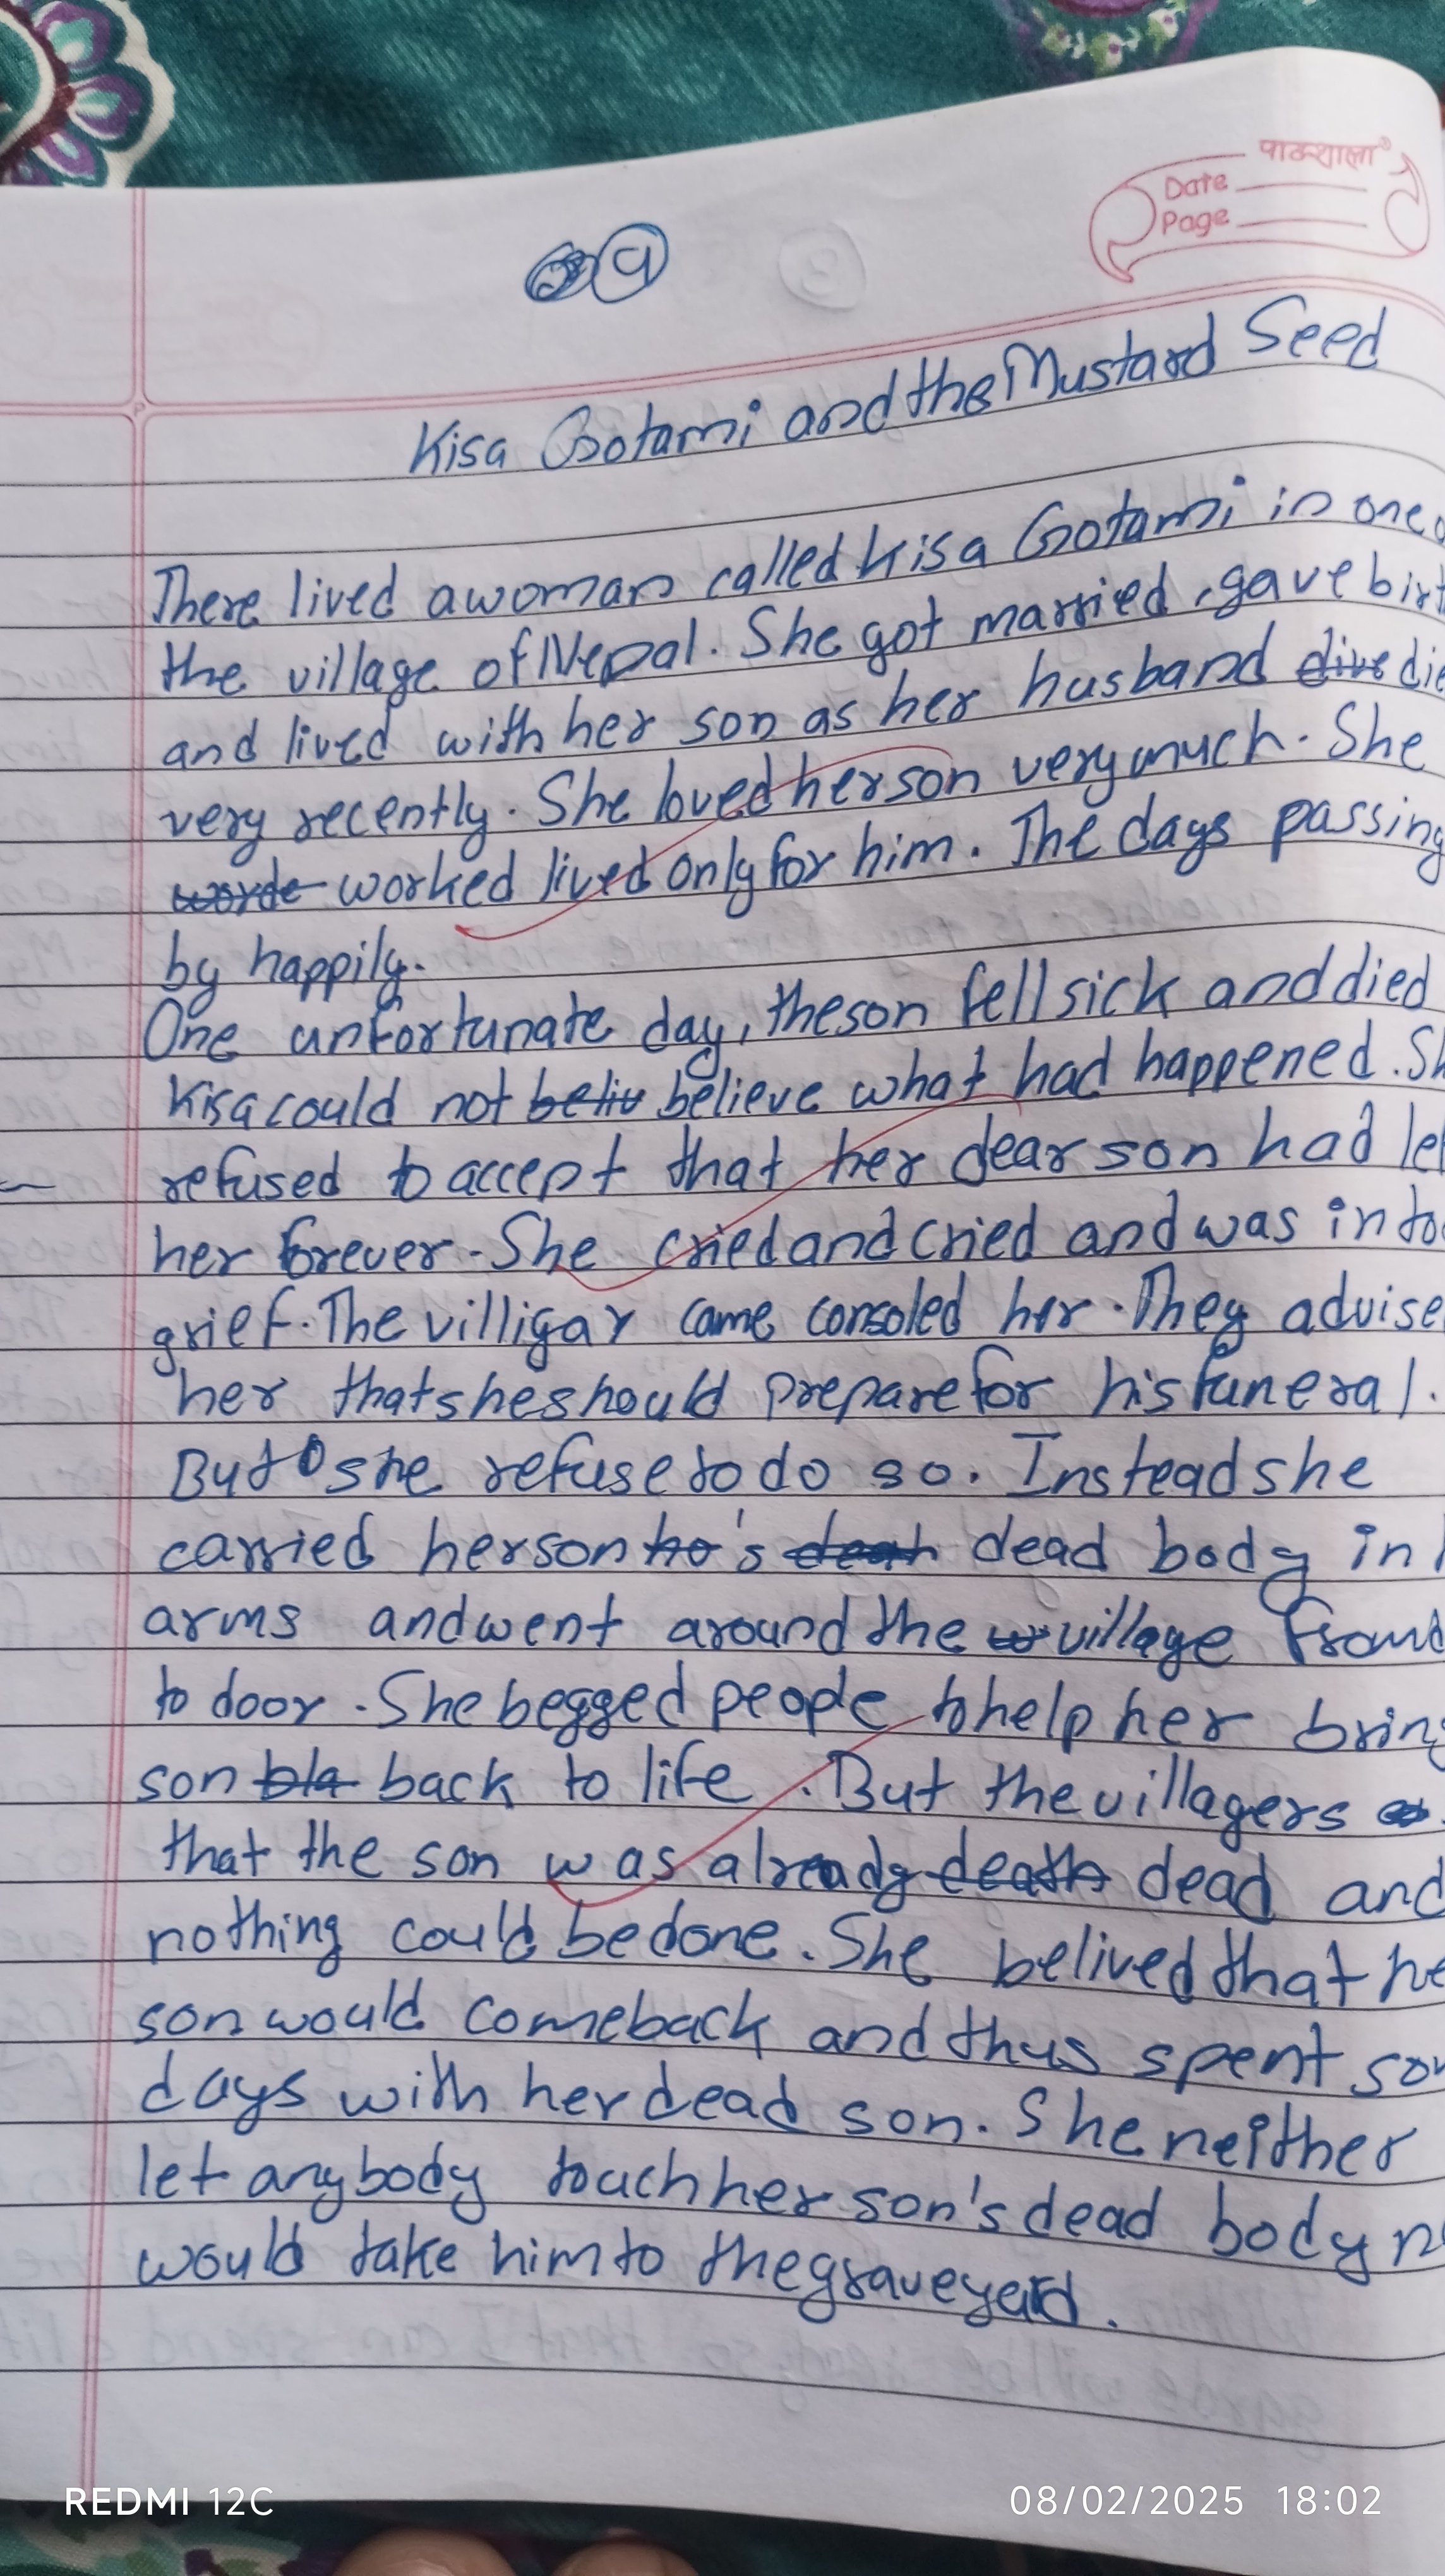 पाठशाला
Date
Page
9
Kisa Gotami and the Mustard Seed
There lived a woman called Kisa Gotami in one
the village of Nepal. She got married, gave birt
and lived with her son as her husband dive die
very recently. She loved her son very much. She
worde worked lived only for him. The days passing
by happily.
One unfortunate day, the son fell sick and died
Kisa could not beliv believe what had happened. Sh
refused to accept that her dear son had lef
her forever. She cried and cried and was in to
grief. The villigar came consoled her. They advise
her that she should prepare for his funeral.
But she refuse to do so. Instead she
carried her son ho's death dead body in h
arms and went around the w village from d
to door. She begged people to help her bring
son bla back to life. But the villagers
that the son was already death dead and
nothing could be done. She belived that he
son would come back and thus spent som
days with her dead son. She neither
let anybody touch her son's dead body n
would take him to the graveyard.
REDMI 12C
08/02/2025 18:02